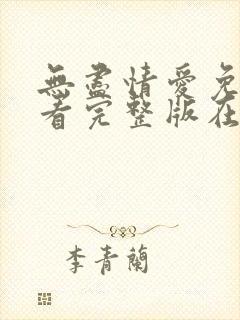 無盡情愛免
看完整版在
李青蘭